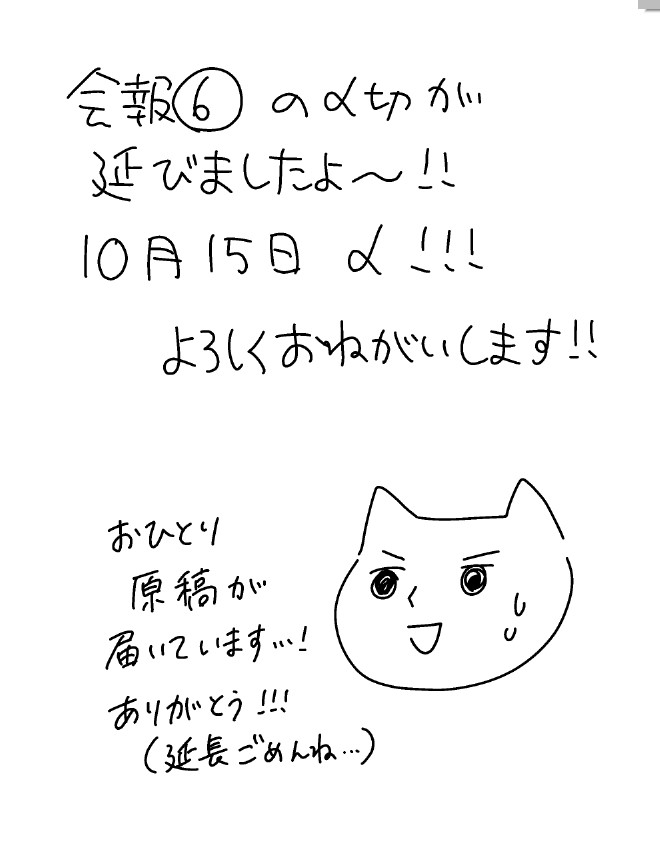 会報⑥の〆切が
延びましたよ〜!!
10月15日〆!!!
よろしくおねがいします!!
おひとり
原稿が
届いています…!
ありがとう!!!
(延長ごめんね…)